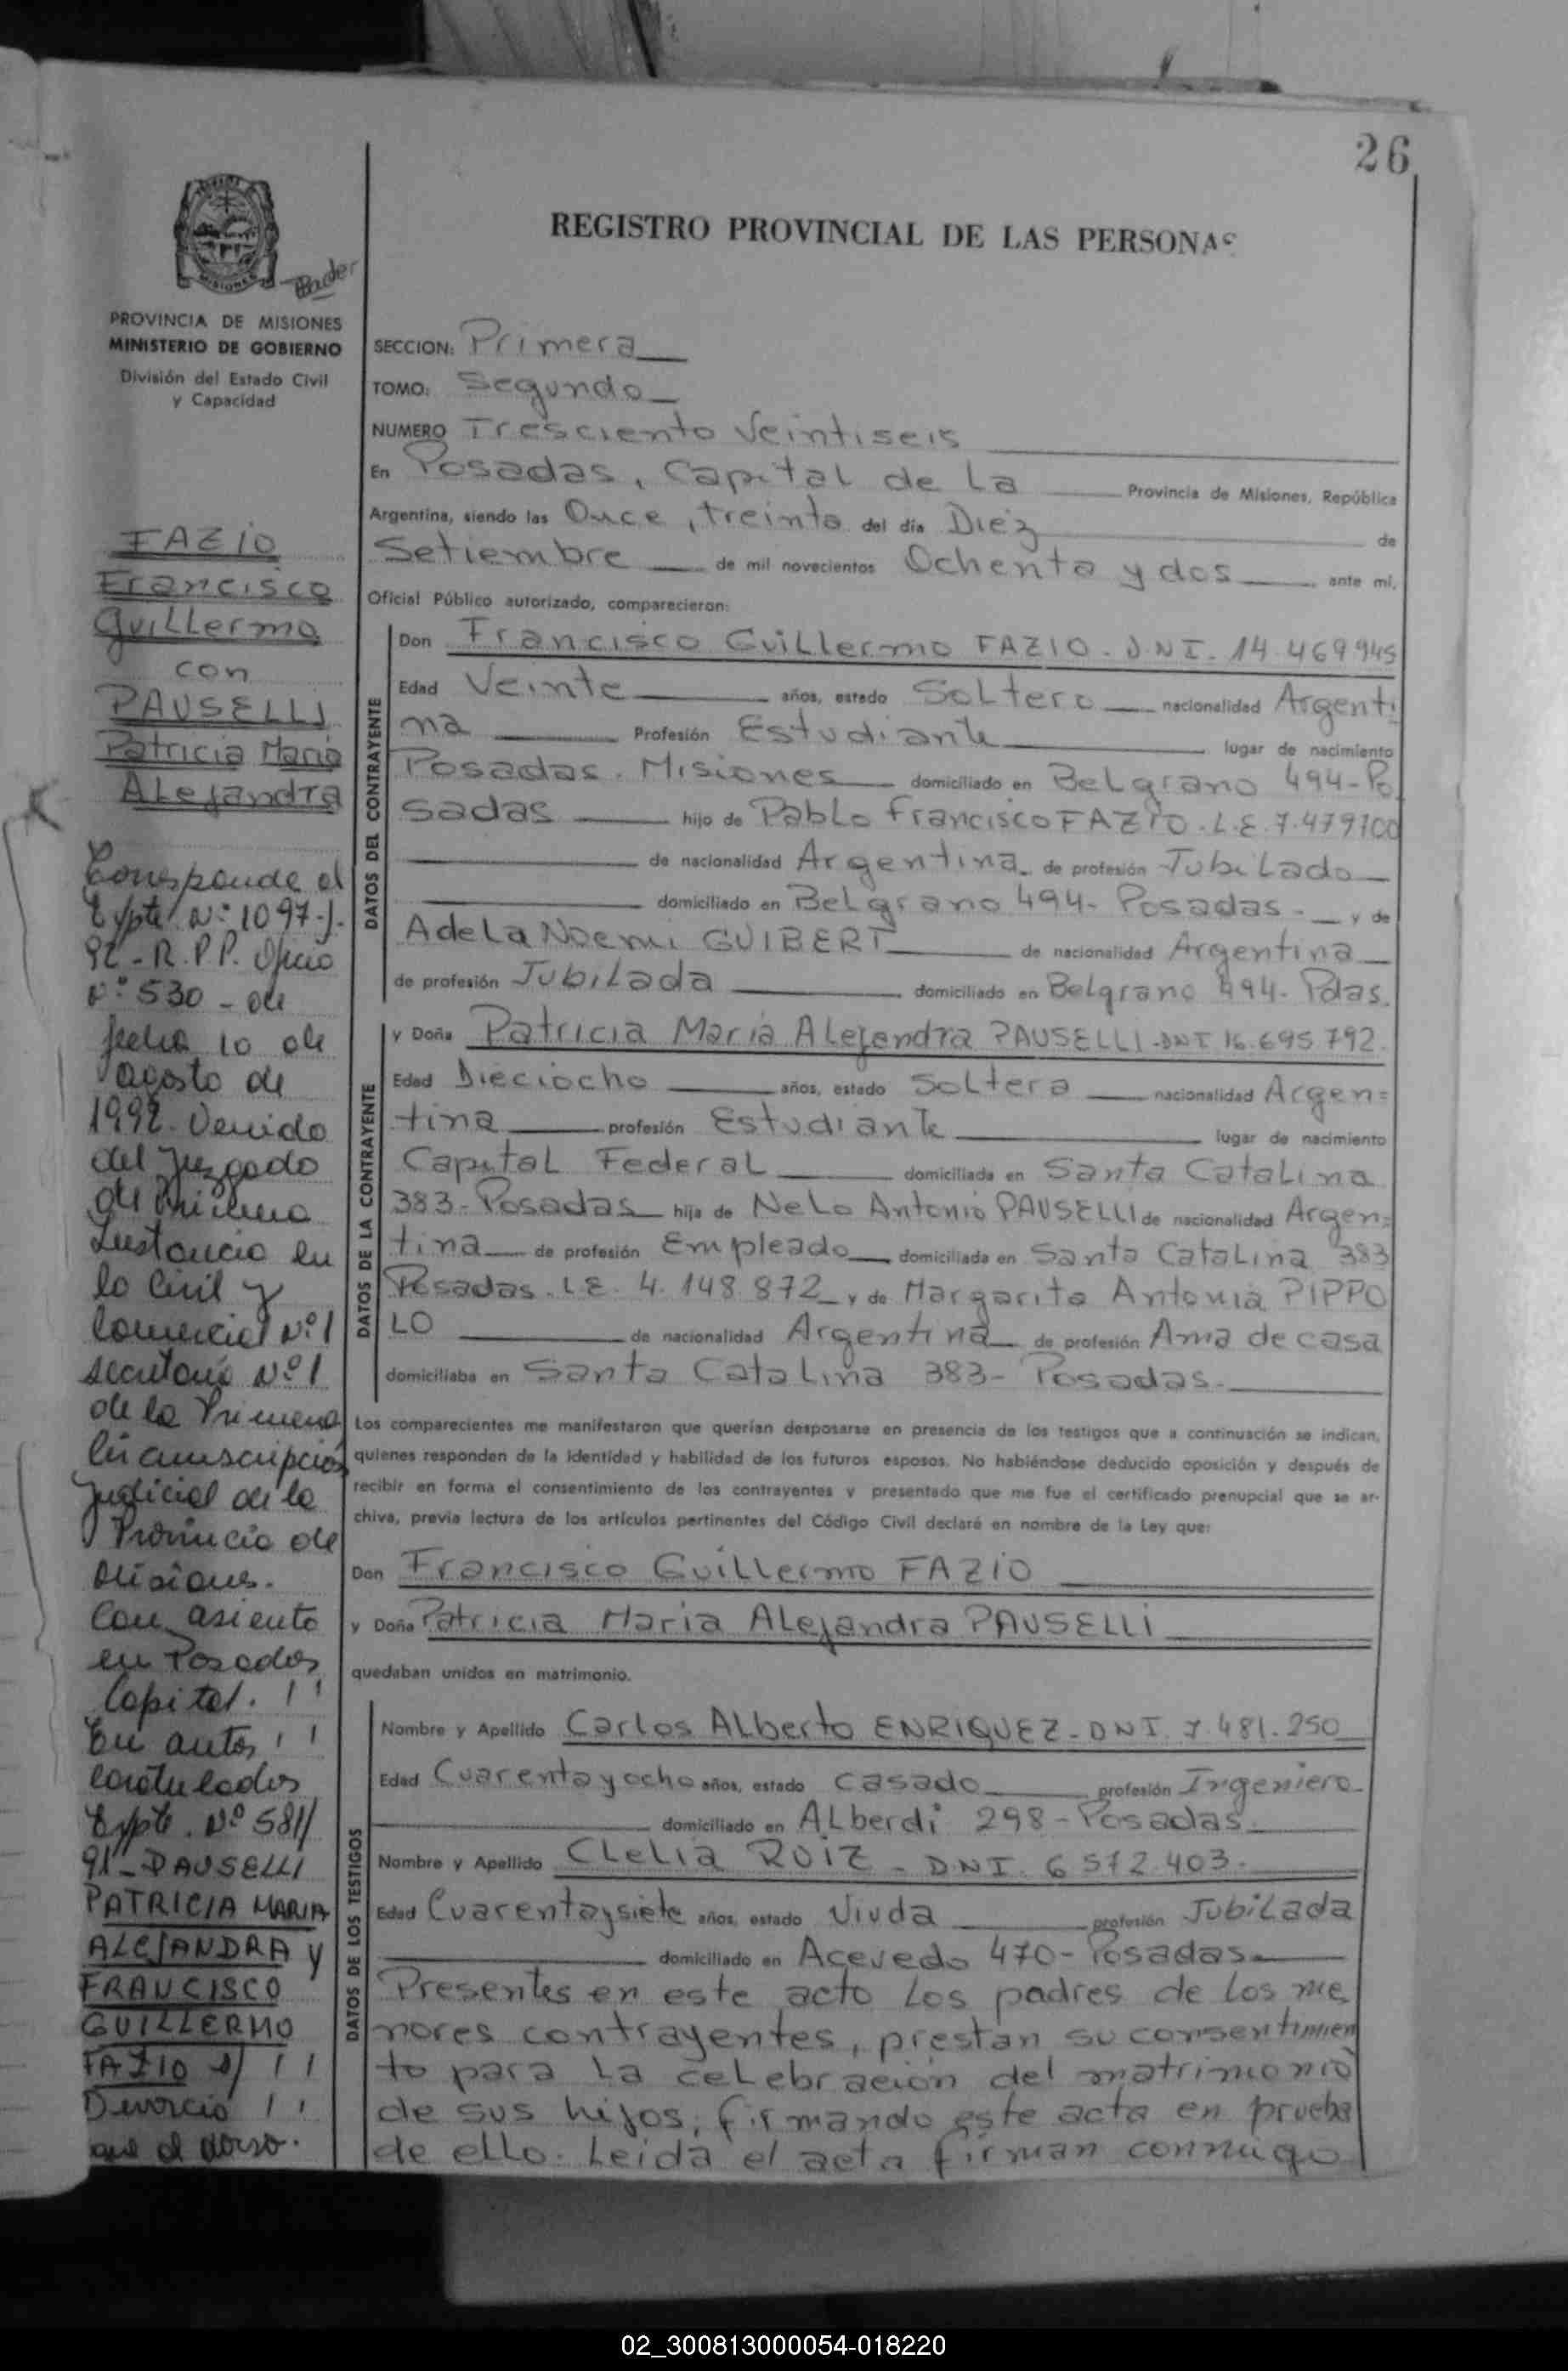 26
REGISTRO PROVINCIAL DE LAS PERSONAS
MISIONES
PROVINCIA DE MISIONES
MINISTERIO DE GOBIERNO
División del Estado Civil
y Capacidad
FAZIO
Francisco
Guillermo
con
PAUSELLI
Patricia Maria
Alejandra
Corresponde al
Expte. Nº 1097-J-
92-R.P.P. Oficio
Nº 530 - de
fecha 10 de
agosto de
1992. Venido
del Juzgado
de Primera
Instancia en
lo Civil y
Comercial Nº 1
secretaria Nº 1
de la Primera
Circunscripción
Judicial de la
Provincia de
Misiones.
Con asiento
en Posadas
Capital. ! !
En autos ! !
caratulados
Expte. Nº 581/
91-PAUSELLI
PATRICIA MARIA
ALEJANDRA y
FRANCISCO
GUILLERMO
FAZIO s/ ! !
Divorcio ! !
que al dorso.
SECCION: Primera
TOMO: Segundo
NUMERO Tresciento Veintiseis
En Posadas, Capital de La Provincia de Misiones, República
Argentina, siendo las Once, treinta del día Diez de
Setiembre de mil novecientos Ochenta y dos ante mí,
Oficial Público autorizado, comparecieron:
DATOS DEL CONTRAYENTE
Don Francisco Guillermo FAZIO - D.N.I. 14.469945
Edad Veinte años, estado Soltero nacionalidad Argenti
na Profesión Estudiante lugar de nacimiento
Posadas. Misiones domiciliado en Belgrano 494-Po
sadas hijo de Pablo Francisco FAZIO. L.E. 7.479100
de nacionalidad Argentina de profesión Jubilado
domiciliado en Belgrano 494- Posadas.- y de
Adela Noemi GUIBERT de nacionalidad Argentina
de profesión Jubilada domiciliado en Belgrano 494- Pdas.
DATOS DE LA CONTRAYENTE
y Doña Patricia Maria Alejandra PAUSELLI - DNI 16.695.792.
Edad Dieciocho años, estado Soltera nacionalidad Argen=
tina profesión Estudiante lugar de nacimiento
Capital Federal domiciliada en Santa Catalina
383- Posadas hija de Nelo Antonio PAUSELLI de nacionalidad Argen=
tina de profesión Empleado domiciliada en Santa Catalina 383
Posadas. L.E. 4.148.872 y de Margarita Antonia PIPPO
LO de nacionalidad Argentina de profesión Ama de casa
domiciliaba en Santa Catalina 383- Posadas.
Los comparecientes me manifestaron que querían desposarse en presencia de los testigos que a continuación se indican,
quienes responden de la identidad y habilidad de los futuros esposos. No habiéndose deducido oposición y después de
recibir en forma el consentimiento de los contrayentes y presentado que me fue el certificado prenupcial que se ar-
chiva, previa lectura de los artículos pertinentes del Código Civil declaré en nombre de la Ley que:
Don Francisco Guillermo FAZIO
y Doña Patricia Maria Alejandra PAUSELLI
quedaban unidos en matrimonio.
DATOS DE LOS TESTIGOS
Nombre y Apellido Carlos Alberto ENRIQUEZ - DNI. 7.481.250
Edad Cuarenta y ocho años, estado casado profesión Ingeniero
domiciliado en Alberdi 298- Posadas
Nombre y Apellido Clelia RUIZ - DNI. 6 512.403.
Edad Cuarentaysiete años, estado Viuda profesión Jubilada
domiciliado en Acevedo 470- Posadas
Presentes en este acto los padres de los me
nores contrayentes, prestan su consentimien
to para la celebracion del matrimonio
de sus hijos, firmando este acta en prueba
de ello. Leida el acta firman conmigo
02_300813000054-018220